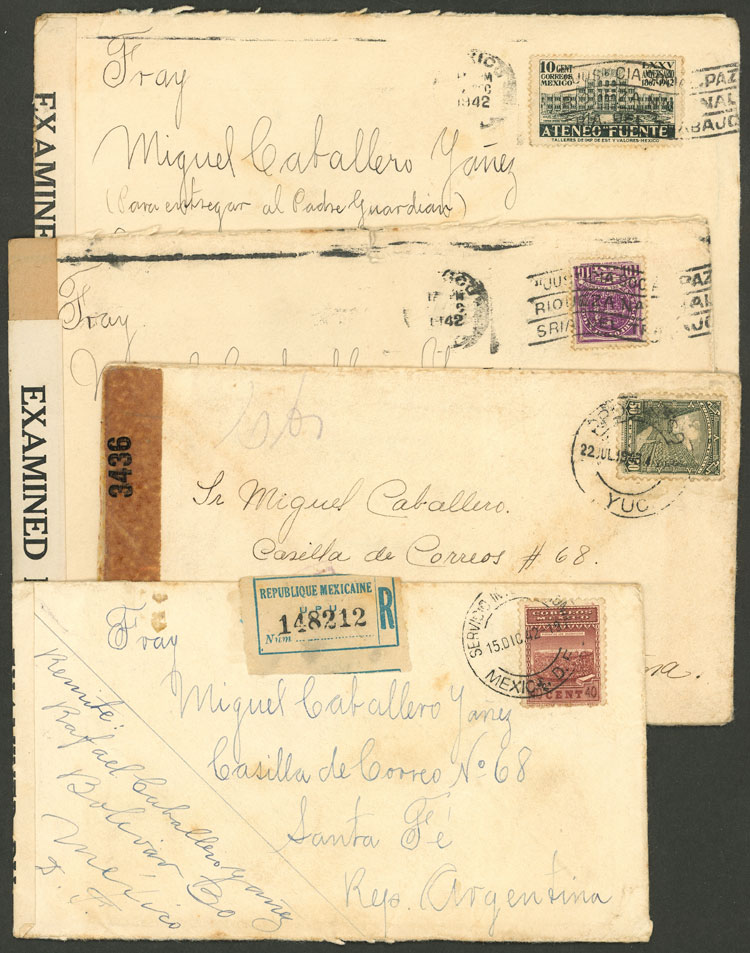 EXAMINE
Fray
Miguel Caballero Yáñez
(Para entregar al Padre Guardian)
1942
10 CENT
CORREOS
MEXICO
LXXV
ANIVERSARIO
1867-1942
ATENEO FUENTE
TALLERES DE IMP. DE EST. Y VALORES-MEXICO
PAZ
NAL
ABAJO
EXAMINED
Fray
1942
"JUS
PAZ
RIO
NA
SRIA
3436
Sr Miguel Caballero.
Casilla de Correos # 68.
22 JUL. 1943
YUC
REPUBLIQUE MEXICAINE
U.P.U
Núm
148212
R
Fray
Miguel Caballero Yañez
Casilla de Correo Nº 68
Santa Fé
Rep. Argentina
Remite:
Rafael Caballero Yañez
Bolivar
México
D. F.
SERVICIO
15.DIC.42
MEXICO, D. F.
CORREOS
MEXICO
CENT 40